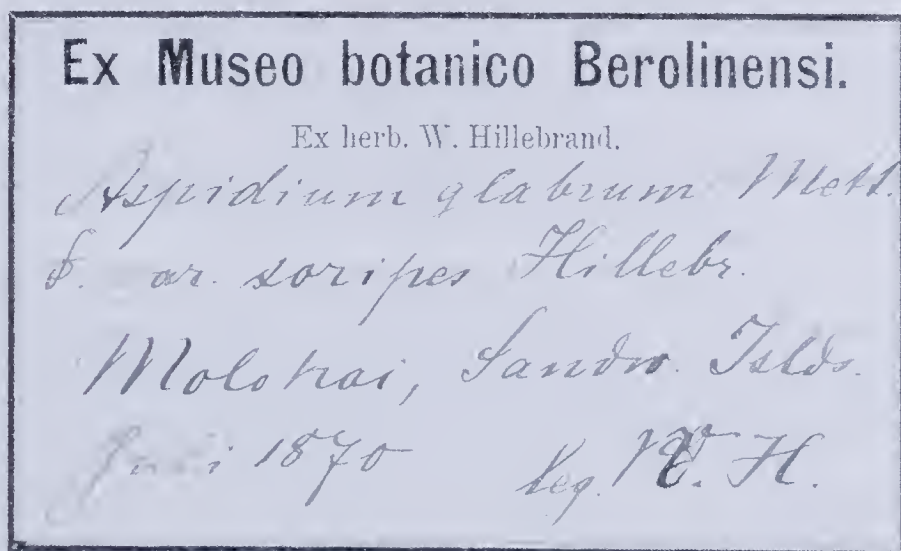 Ex Museo botanico Berolinensi.
Ex herb. W. Hillebrand.
Aspidium glabrum Mett.
soripes Hillebr.
Molokai, Sandw. Islds.
1870 leg. W. H.